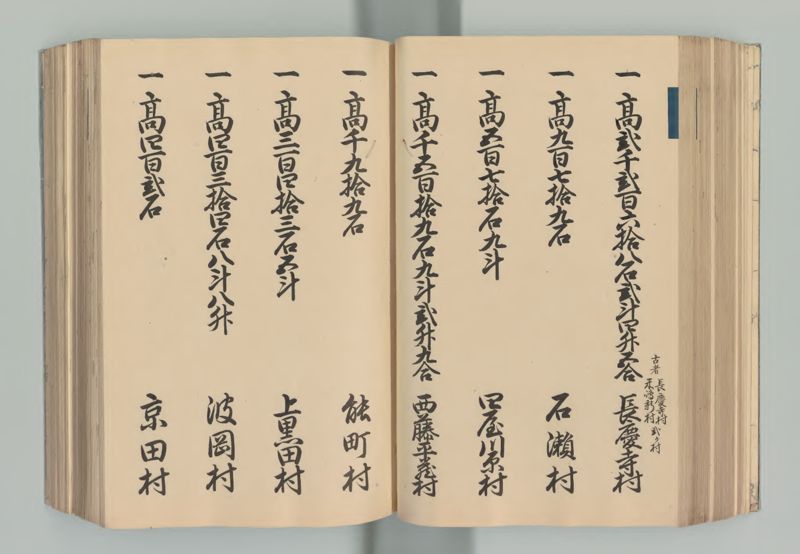 古者 長慶寺村
米嶋新村 弐ケ村
一 高弐千弐百六拾八石弐斗四升五合 長慶寺村
一 高九百七拾九石 石瀬村
一 高五百七拾石九斗 四屋川原村
一 高千五百拾九石九斗弐升九合 西藤平蔵村
一 高千九拾九石 能町村
一 高三百四拾三石五斗 上黒田村
一 高四百三拾四石八斗八升 波岡村
一 高四百弐石 京田村